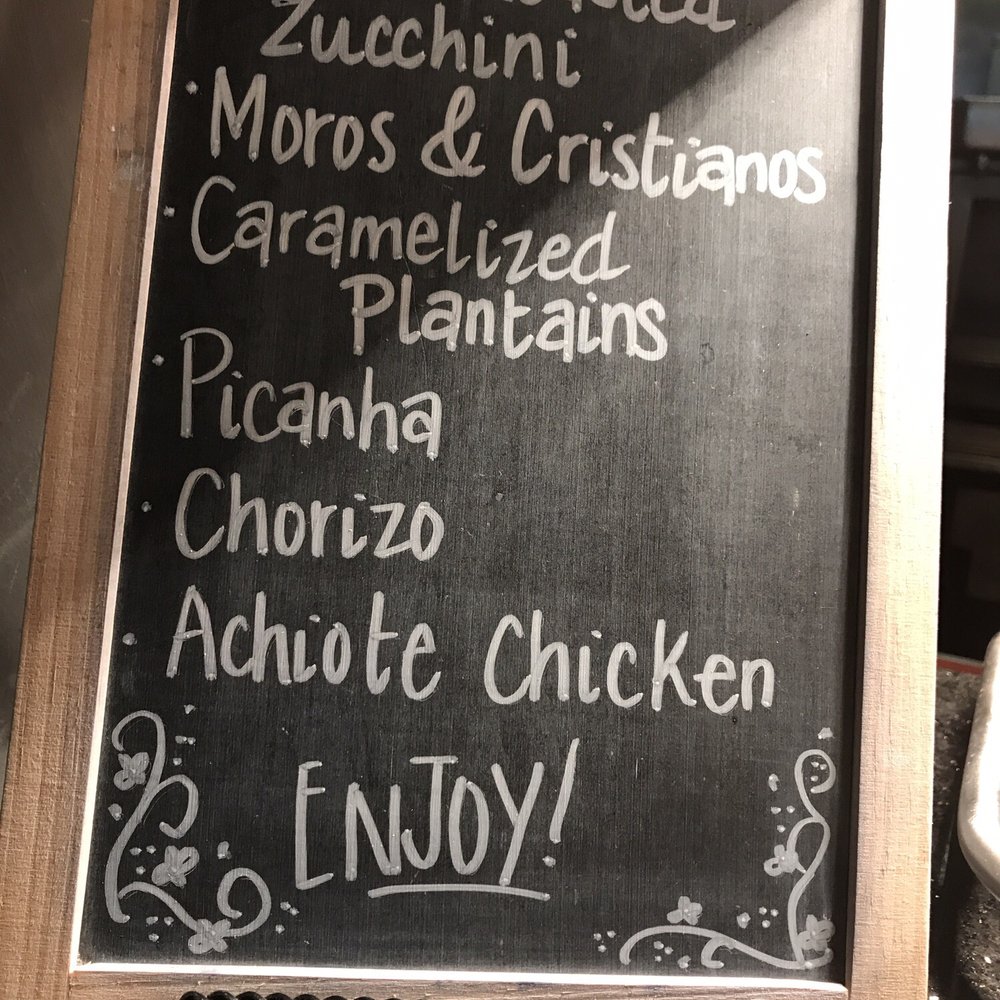 Zucchini
· Moros & Cristianos
· Caramelized
Plantains
· Picanha
· Chorizo
· Achiote Chicken
ENJOY!